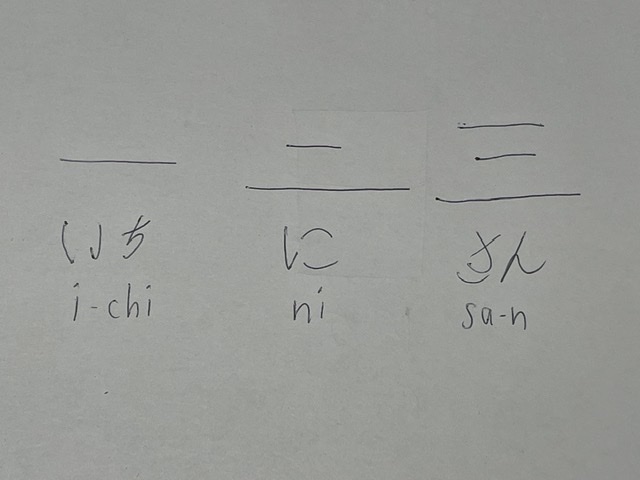 一 二 三
いち に さん
i-chi ni sa-n